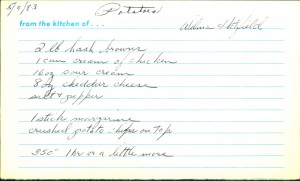 5/9/83
Potatoes
from the kitchen of...
2 lb hash browns
1 can cream of chicken
16 oz sour cream
8 oz cheddar cheese
salt & pepper
1 stick margarine
crushed potato chips on top
350° 1 hr or a little more